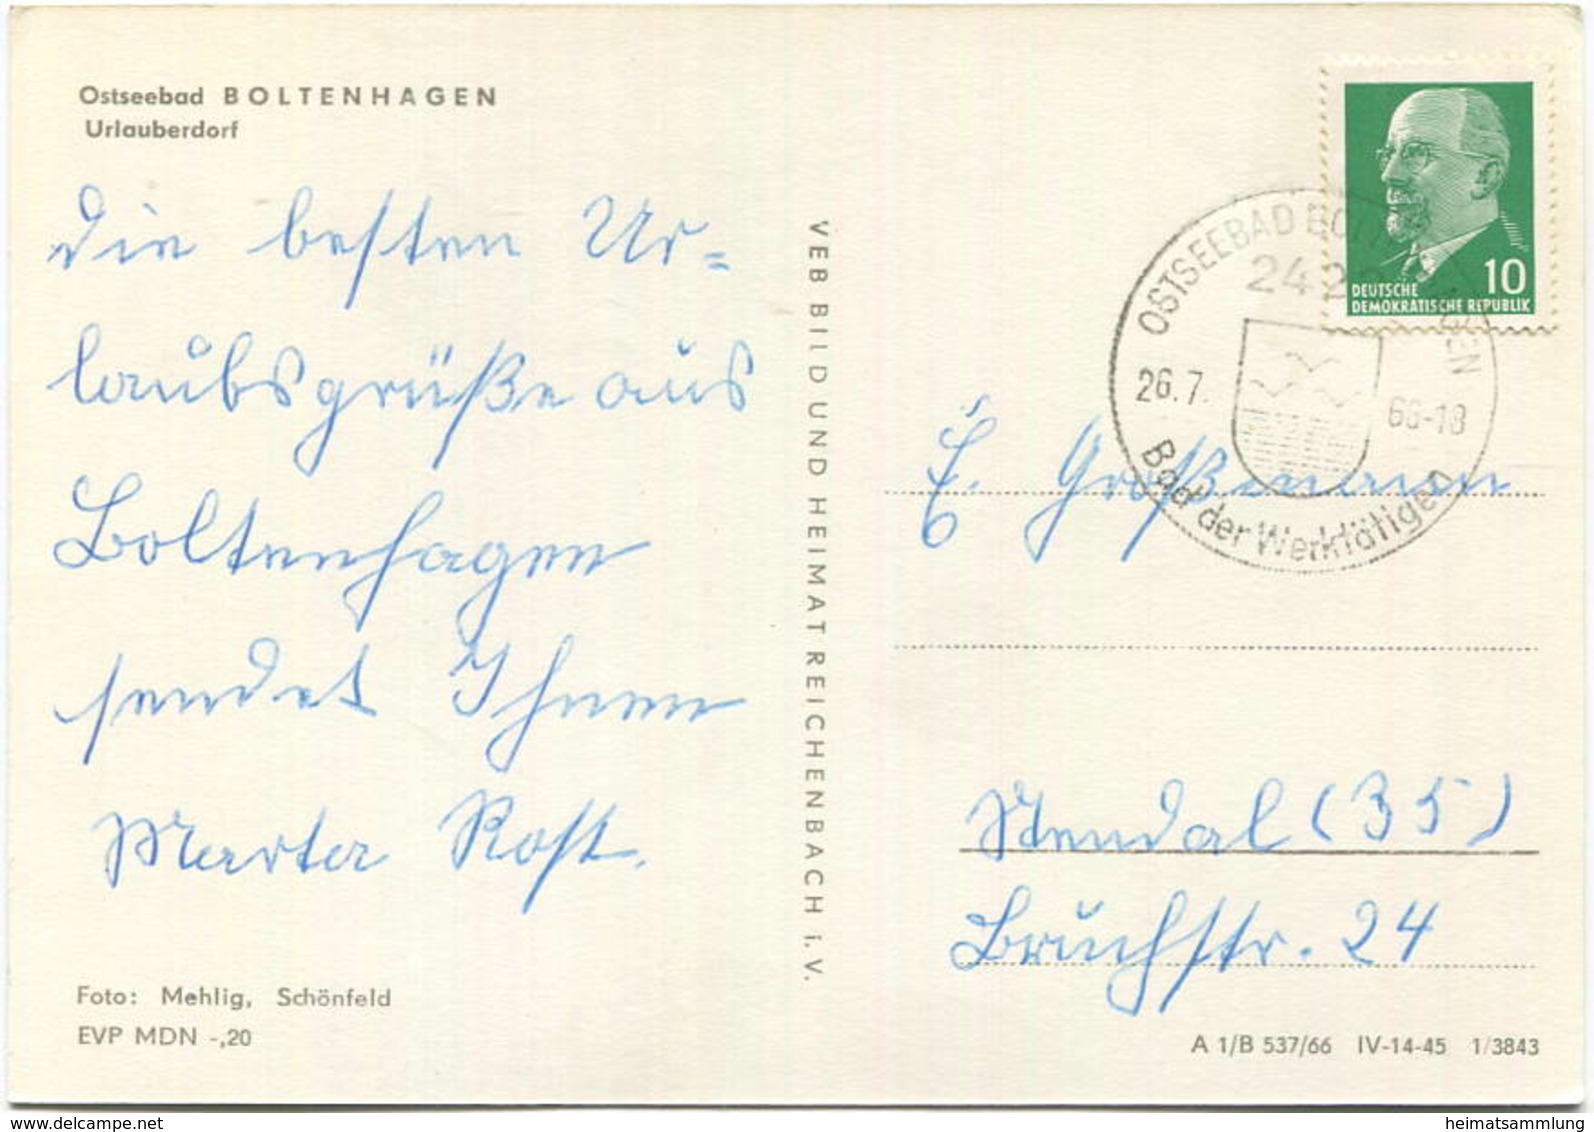 Ostseebad BOLTENHAGEN
Urlauberdorf
Die besten Ur=
laubsgrüße aus
Boltenhagen
sendet Ihnen
Marta Rost.
Foto: Mehlig, Schönfeld
EVP MDN -,20
VEB BILD UND HEIMAT REICHENBACH i. V.
10
DEUTSCHE
DEMOKRATISCHE REPUBLIK
OSTSEEBAD
26.7.
66-18
Bad der Werktätigen
Großmann
Stendal (35)
Bruchstr. 24
A 1/B 537/66 IV-14-45 1/3843
delcampe.net
heimatsammlung